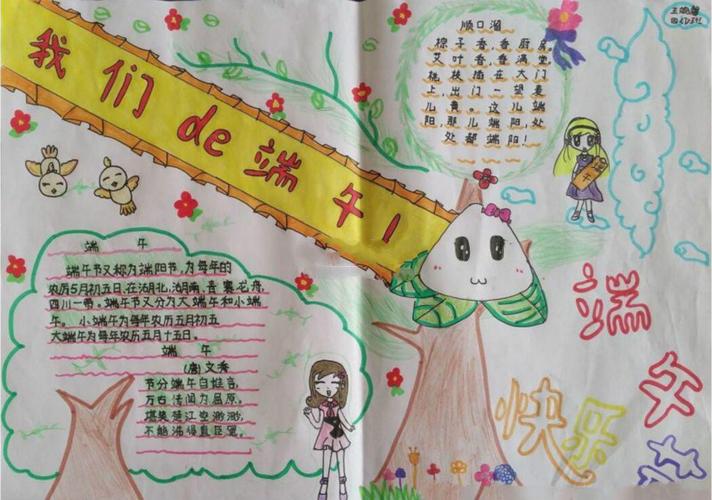 我们de端午!
顺口溜
粽子香,香厨房,
艾叶香,香满堂,
桃枝插在大门
上,出门一望麦
儿黄。这儿端
阳,那儿端阳,处
处都端阳!
午
端午
端午节又称为端阳节,为每年的
农历5月初五日,在湖北,湖南,
四川一带。端午节又分为大端午和小端
午。小端午为每年农历五月初五
大端午为每年农历五月十五日。
端午
(唐)文秀
节分端午自谁言,
万古传闻为屈原。
堪笑楚江空渺渺,
不能洗得直臣冤。
端午
快乐